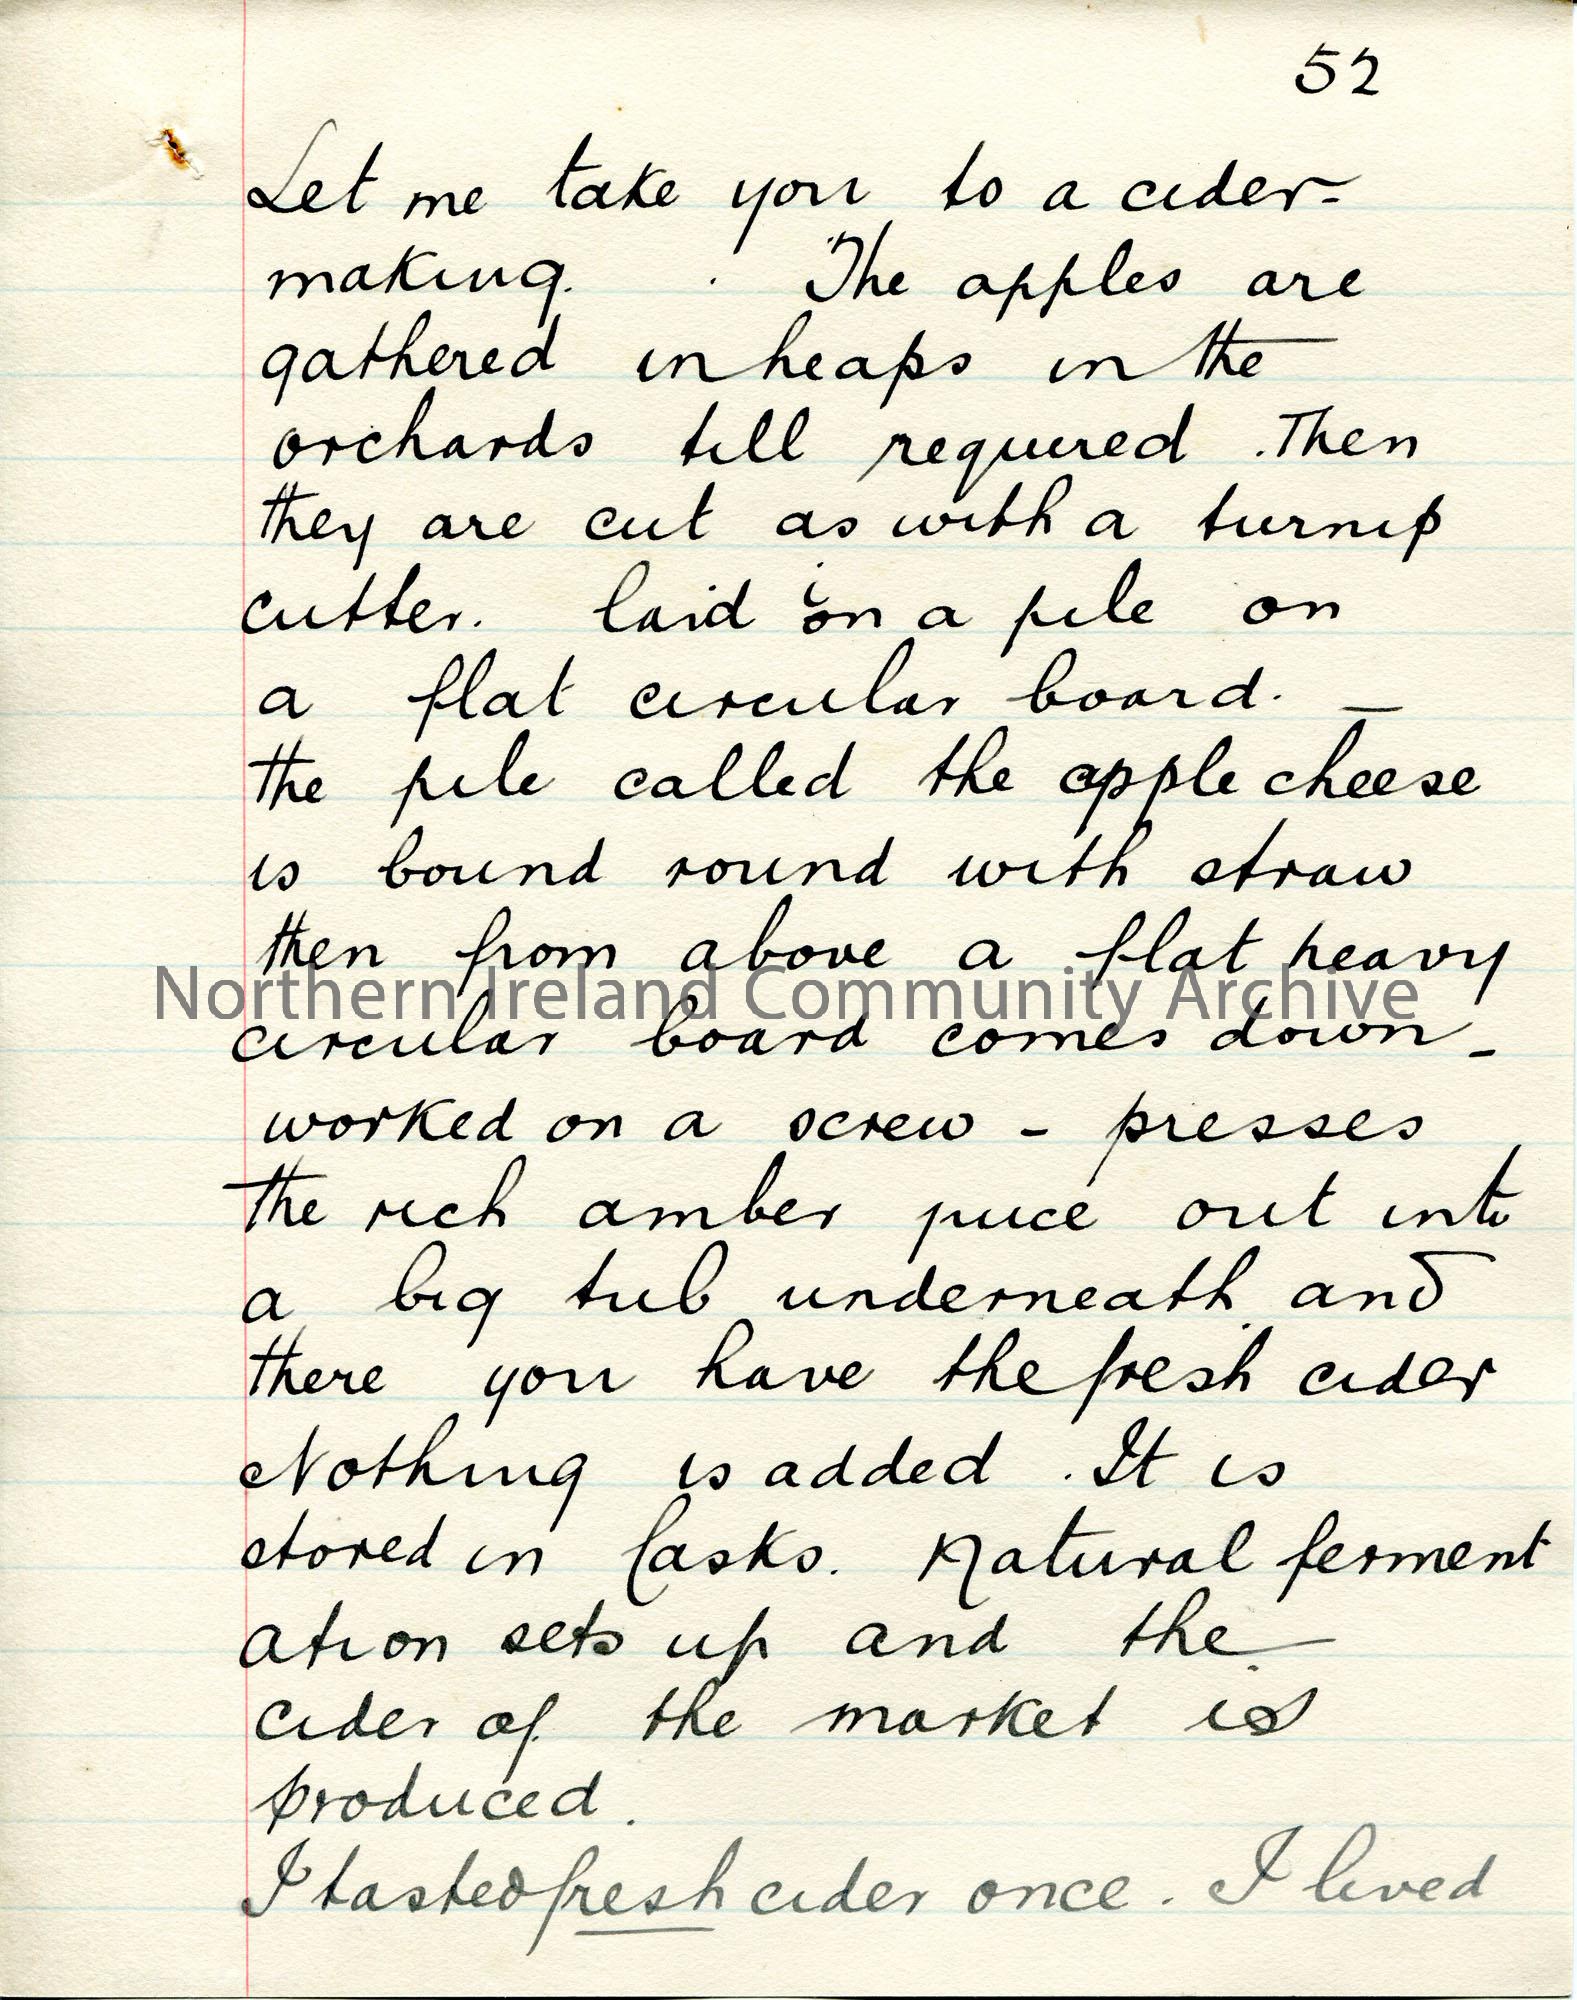 52
Let me take you to a cider-
making. The apples are
gathered in heaps in the
orchards till required. Then
they are cut as with a turnip
cutter. laid on a pile on
a flat circular board. —
the pile called the apple cheese
is bound round with straw
then from above a flat heavy
Northern Ireland Community Archive
circular board comes down -
worked on a screw - presses
the rich amber juice out into
a big tub underneath and
there you have the fresh cider
Nothing is added. It is
stored in Casks. Natural ferment
ation sets up and the
cider of the market is
produced.
I tasted fresh cider once. I lived